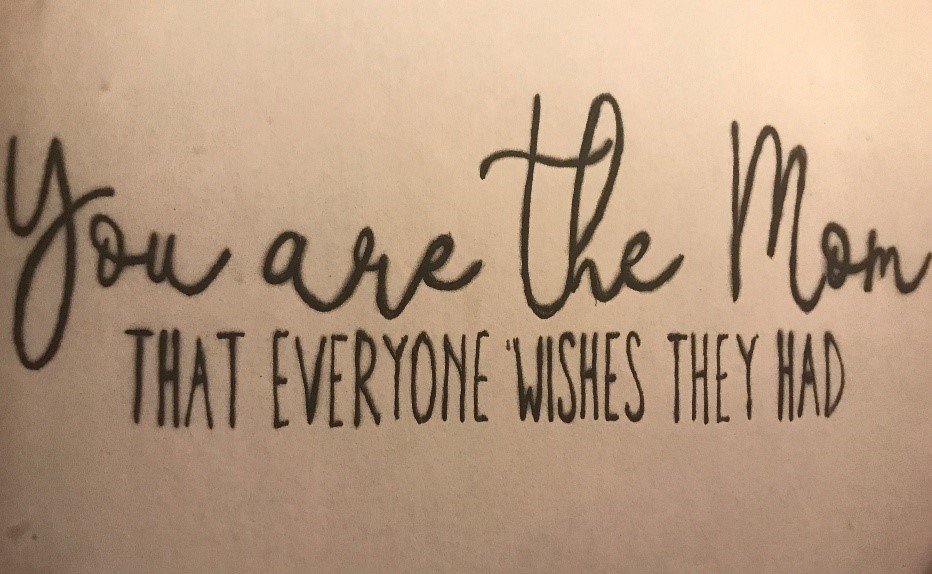 You are the Mom
THAT EVERYONE WISHES THEY HAD